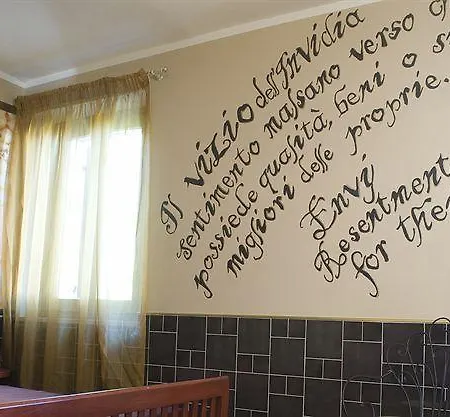 Il vizio dell'Invidia
sentimento malsano verso
possiede qualità, beni o
migliori delle proprie.
Envy
Resentment
for the